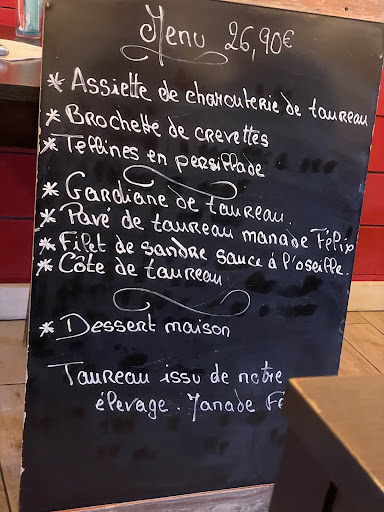 Menu 26,90€
* Assiette de charcuterie de taureau
* Brochette de crevettes
* Tellines en persillade
* Gardiane de taureau.
* Pavé de taureau manade Félix
* Filet de sandre sauce à l'oseille.
* Côte de taureau
* Dessert maison
Taureau issu de notre
élevage. Manade Fé